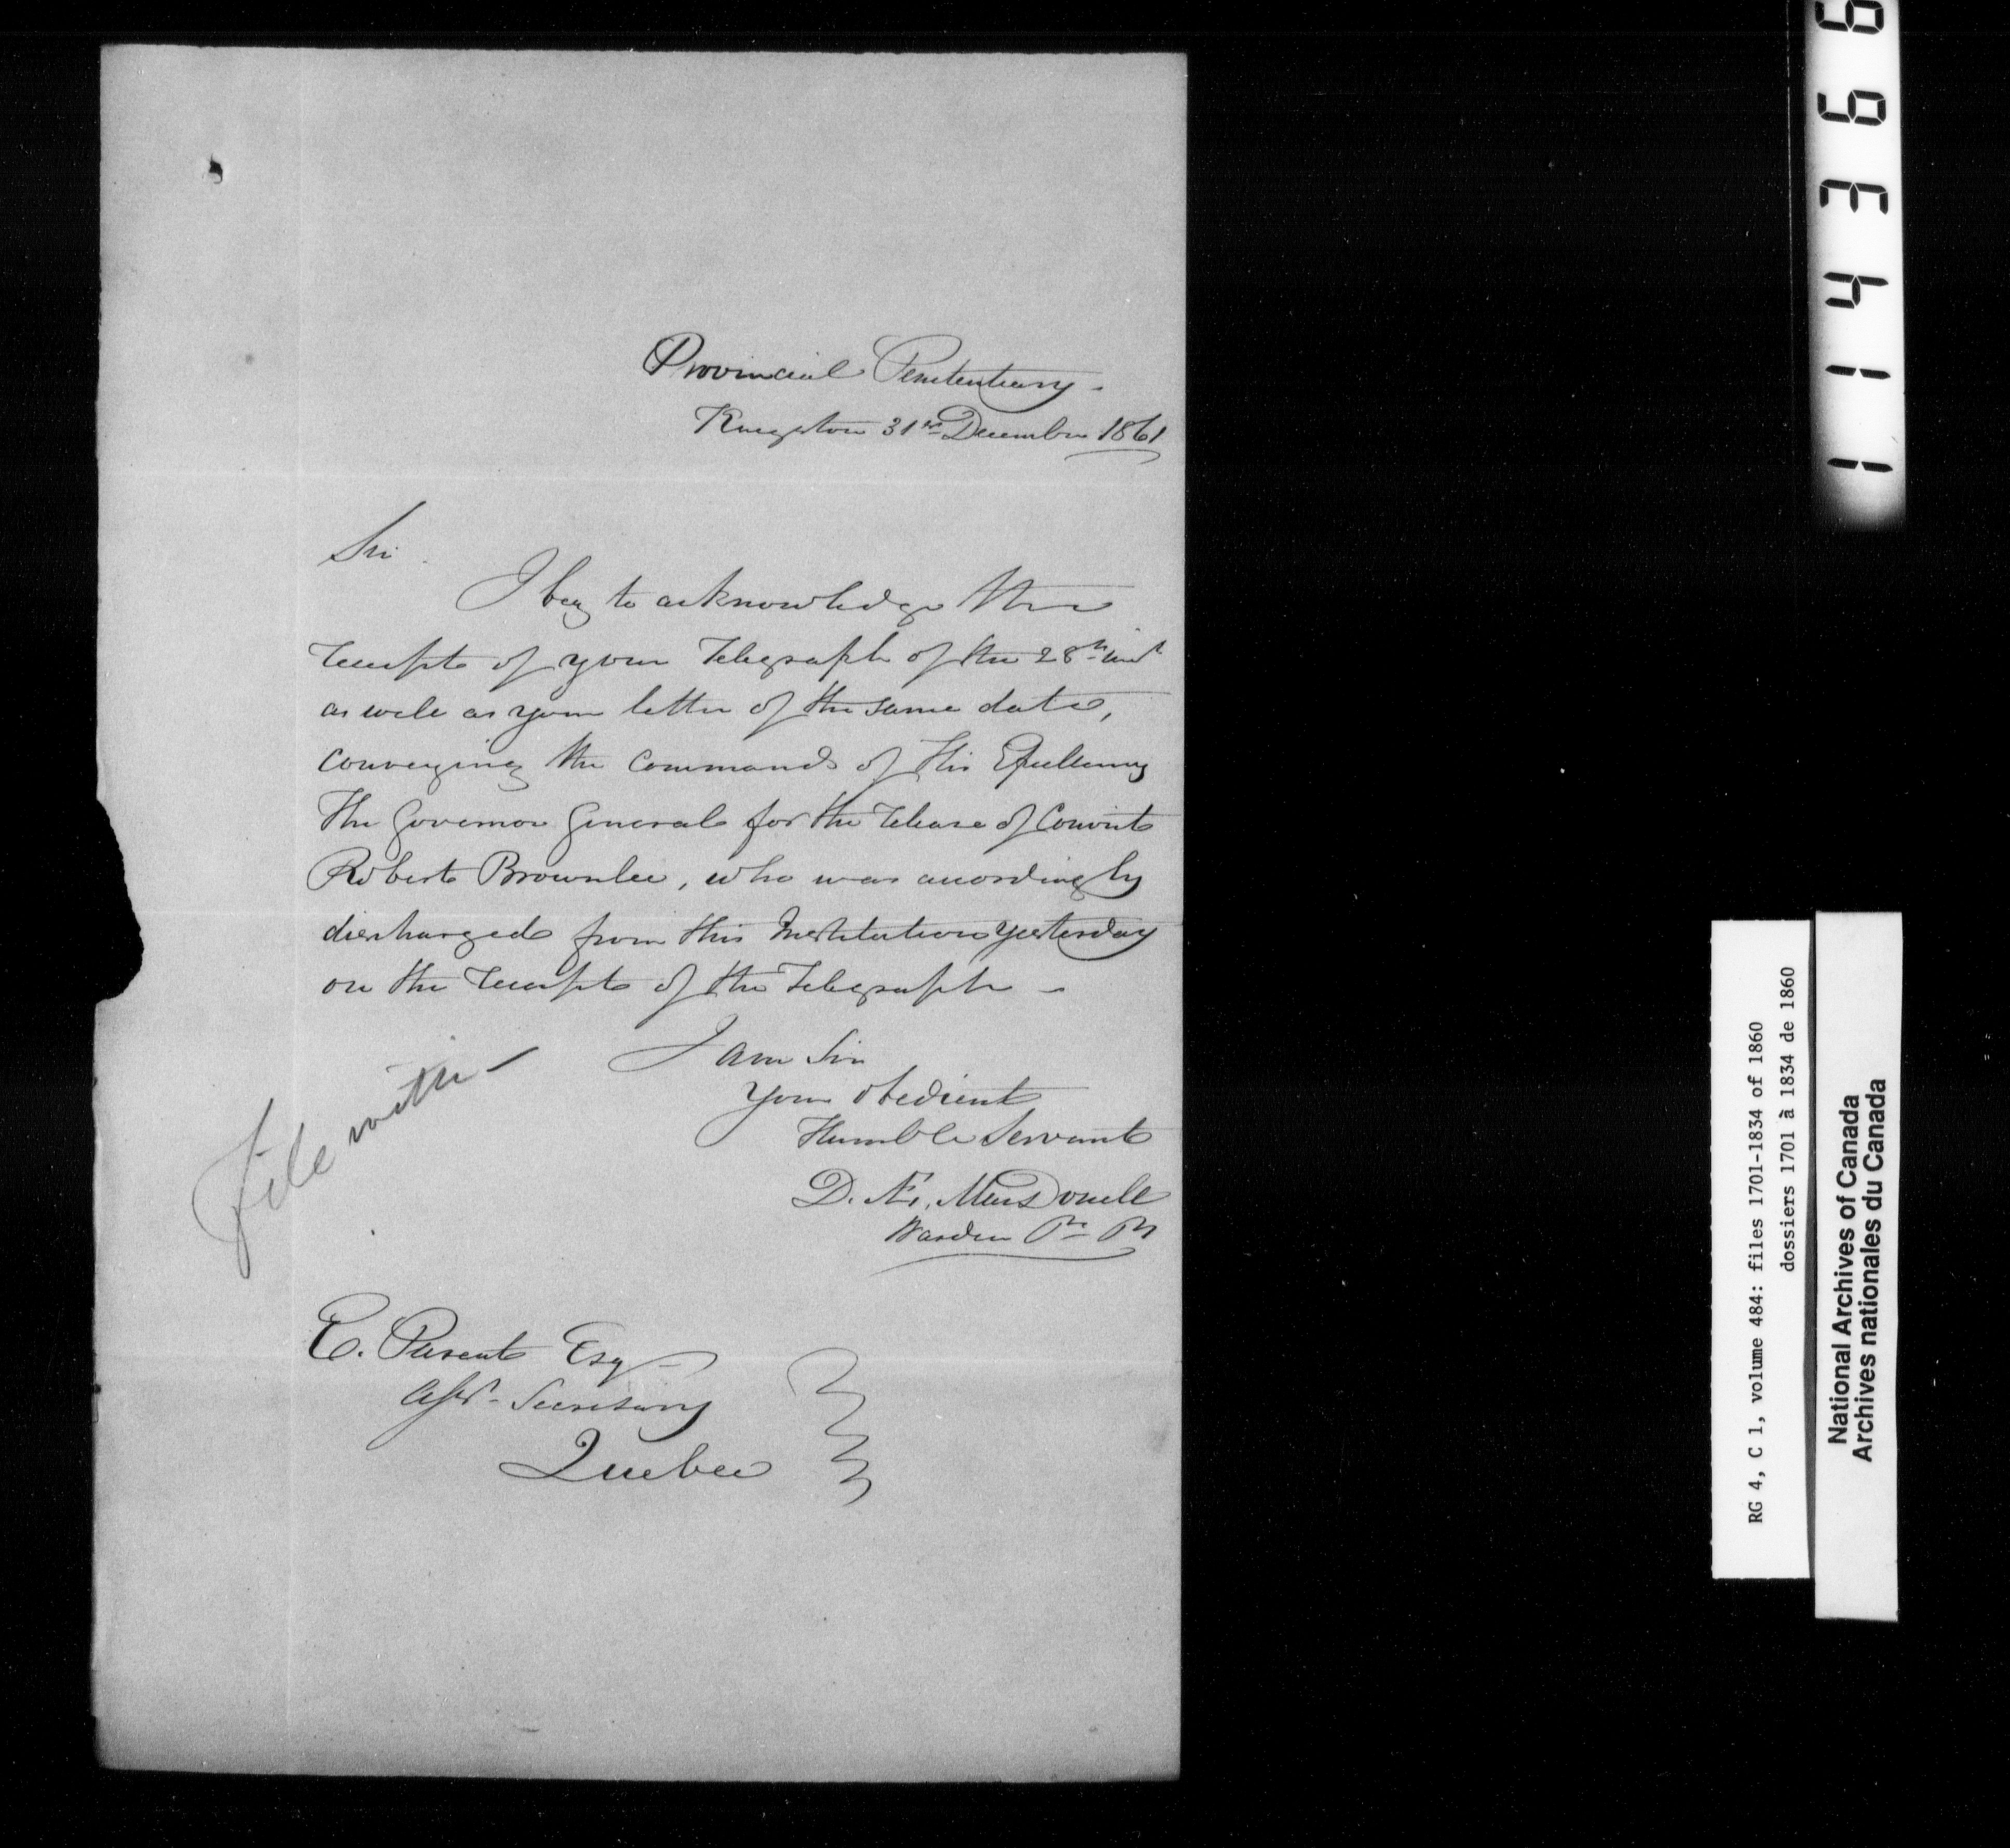 Provincial Penitentiary -
Kingston 31st December 1861
Sir.
I beg to acknowledge the
receipt of your Telegraph of the 28th inst
as well as your letter of the same date,
conveying the commands of His Excellency
The Governor General for the release of Convict
Robert Brownlee, who was accordingly
discharged from this Institution yesterday
on the receipt of the Telegraph -
I am Sir
Your obedient
Humble Servant
D. Æ. MacDonell
Warden
File with -
E. Parent Esq
Asst. Secretary
Quebec
114366
RG 4, C 1, volume 484: files 1701-1834 of 1860
dossiers 1701 à 1834 de 1860
National Archives of Canada
Archives nationales du Canada